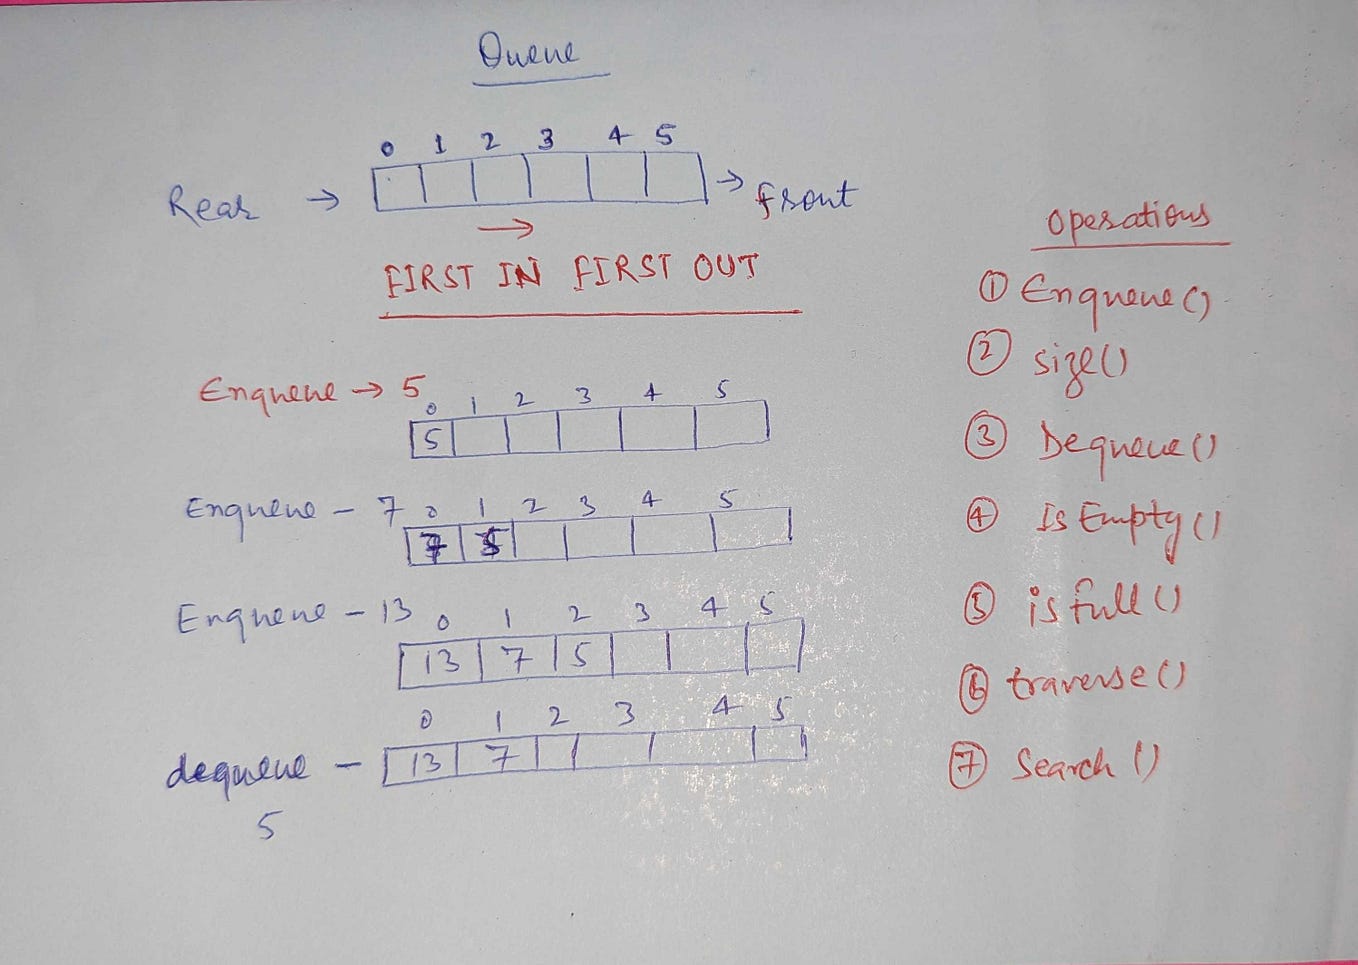 Queue
0 1 2 3 4 5
Rear → → front
→
FIRST IN FIRST OUT
Enqueue → 5
0 1 2 3 4 5
5
Enqueue - 7
0 1 2 3 4 5
7 5
Enqueue - 13
0 1 2 3 4 5
13 7 5
0 1 2 3 4 5
dequeue - 13 7
5
Operations
① Enqueue()
② size()
③ Dequeue()
④ IsEmpty()
⑤ isfull()
⑥ traverse()
⑦ Search()